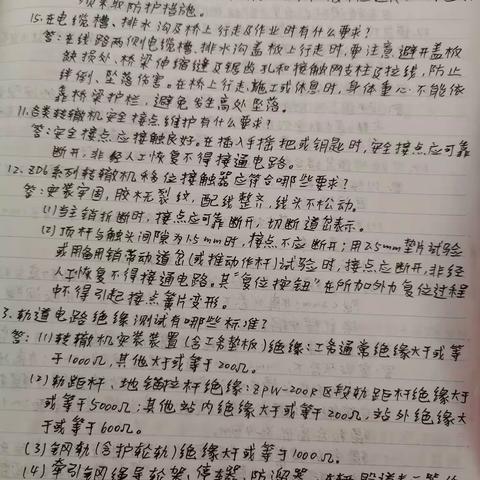 须采取防护措施。
15.在电缆槽、排水沟及桥上行走及作业时有什么要求?
答:在线路两侧电缆槽、排水沟盖板上行走时,要注意避开盖板
缺损处、桥梁伸缩缝及锯齿孔和接触网支柱及拉线,防止
绊倒、坠落伤害。在桥上行走、施工或休息时,身体重心不能依
靠桥梁护栏,避免发生高处坠落。
11.各类转辙机安全接点维护有什么要求?
答:安全接点应接触良好。在插入手摇把或钥匙时,安全接点应可靠
断开,非经人工恢复不得接通电路。
12.ZD6系列转辙机移位接触器应符合哪些要求?
答:安装牢固,胶木无裂纹,配线整齐,线头不松动。
(1)当主销折断时,接点应可靠断开,切断道岔表示。
(2)顶杆与触头间隙为1.5mm时,接点不应断开;用2.5mm垫片试验
或用备用销带动道岔(或推动作杆)试验时,接点应断开,非经
人工恢复不得接通电路。其“复位按钮”在所加外力复位过程
中不得引起接点簧片变形。
3.轨道电路绝缘测试有哪些标准?
答:(1)转辙机安装装置(含工务垫板)绝缘:工务通常绝缘大于或等
于1000Ω,其他大于或等于200Ω。
(2)轨距杆、地锚拉杆绝缘:ZPW-200R区段轨距杆绝缘大于
或等于5000Ω;其他站内绝缘大于或等于200Ω,站外绝缘大
于或等于600Ω。
(3)钢轨(含护轮轨)绝缘大于或等于1000Ω。
(4)牵引钢绳导轮架、停车器、防溜器